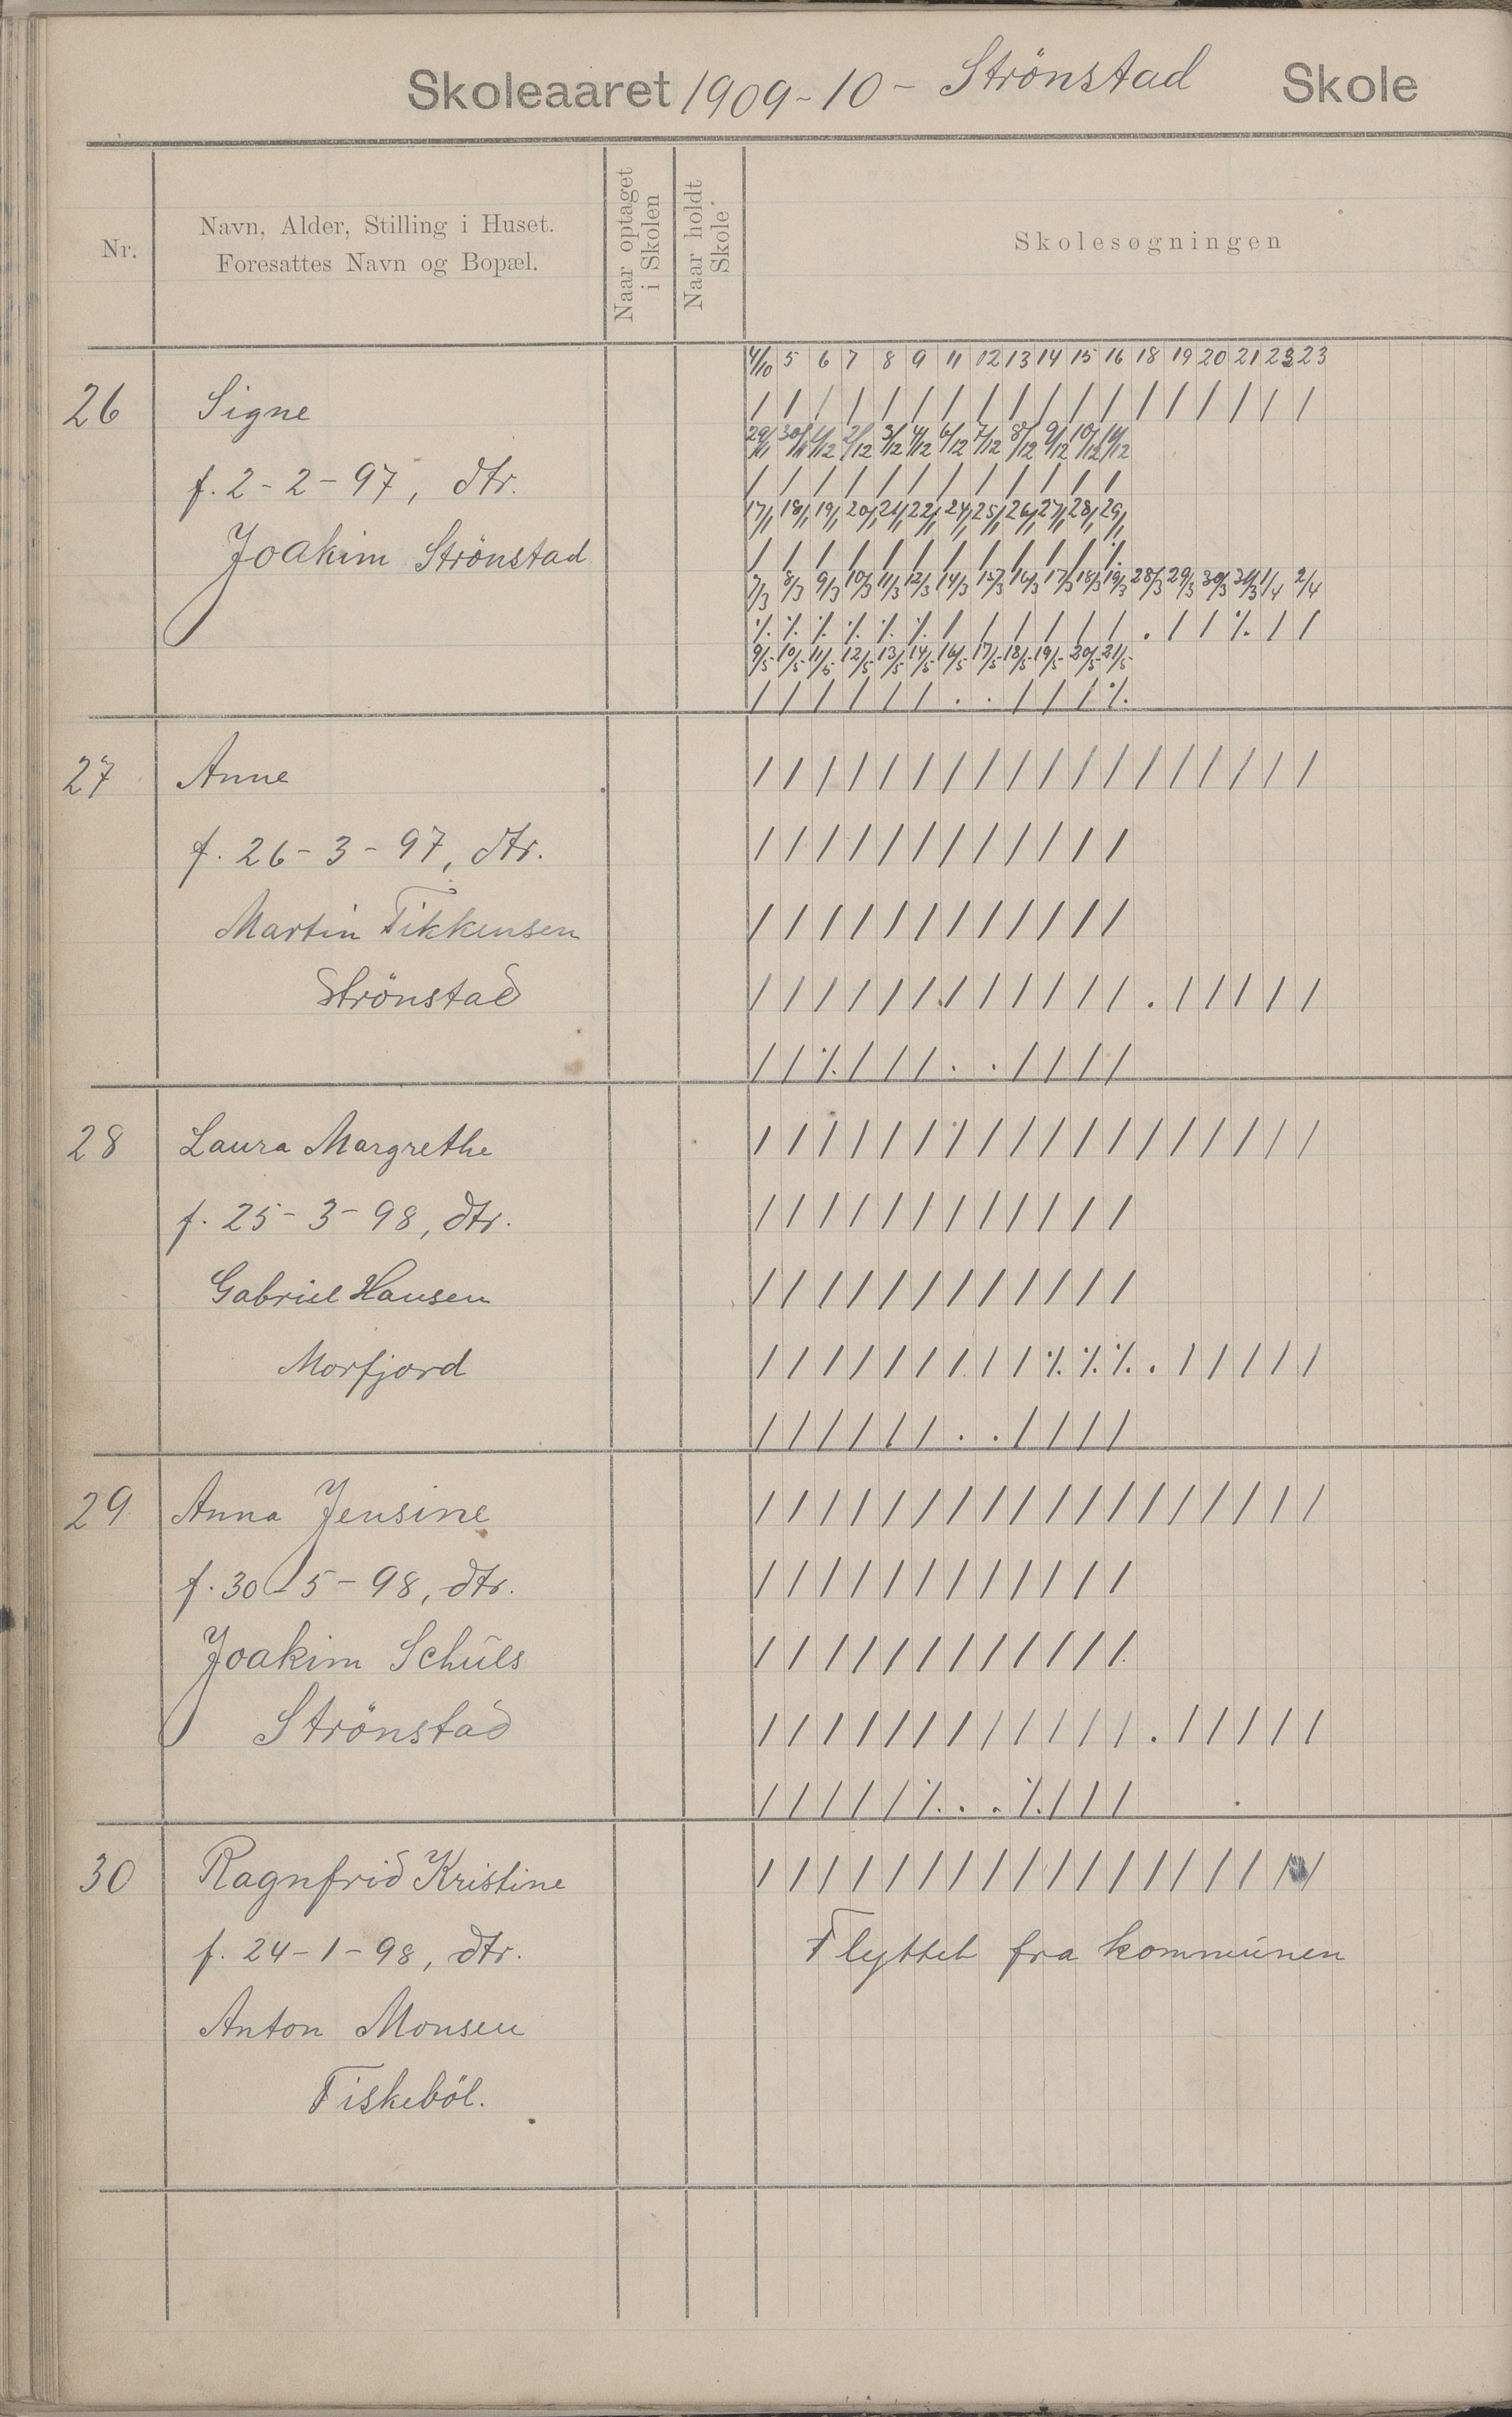 Skoleaaret 1909-10 - Strönstad Skole
Nr.
Navn, Alder, Stilling i Huset.
Foresattes Navn og Bopæl.
Naar optaget
i Skolen
Naar holdt
Skole
Skolesøgningen
4/10 5 6 7 8 9 11 12 13 14 15 16 18 19 20 21 22 23
26 Signe / / / / / / / / / / / / / / / / / /
29/11 30/11 1/12 2/12 3/12 4/12 6/12 7/12 8/12 9/12 10/12 11/12
f. 2-2-97, dtr. / / / / / / / / / / / /
17/1 18/1 19/1 20/1 21/1 22/1 24/1 25/1 26/1 27/1 28/1 29/1
Joakim Strönstad / / / / / / / / / / / ٪
7/3 8/3 9/3 10/3 11/3 12/3 14/3 15/3 16/3 17/3 18/3 19/3 28/3 29/3 30/3 31/3 1/4 2/4
٪ ٪ ٪ ٪ ٪ ٪ / / / / / / . / / ٪ / /
9/5 10/5 11/5 12/5 13/5 14/5 16/5 17/5 18/5 19/5 20/5 21/5
/ / / / / / . . / / / ٪
27 Anne / / / / / / / / / / / / / / / / / /
f. 26-3-97, dtr. / / / / / / / / / / / /
Martin Fikkensen / / / / / / / / / / / /
Strönstad / / / / / / / / / / / / . / / / / /
/ / ٪ / / / . . / / / /
28 Laura Margrethe / / / / / / / / / / / / / / / / / /
f. 25-3-98, dtr. / / / / / / / / / / / /
Gabriel Hansen / / / / / / / / / / / /
Morfjord / / / / / / / / / ٪ ٪ ٪ . / / / / /
/ / / / / / . . / / / /
29 Anna Jensine / / / / / / / / / / / / / / / / / /
f. 30-5-98, dtr. / / / / / / / / / / / /
Joakim Schüls / / / / / / / / / / / /
Strönstad / / / / / / / / / / / / . / / / / /
/ / / / / ٪ . . ٪ / / /
30 Ragnfrid Kristine / / / / / / / / / / / / / / / / / /
f. 24-1-98, dtr. Flyttet fra kommunen
Anton Monsen
Fiskeböl.